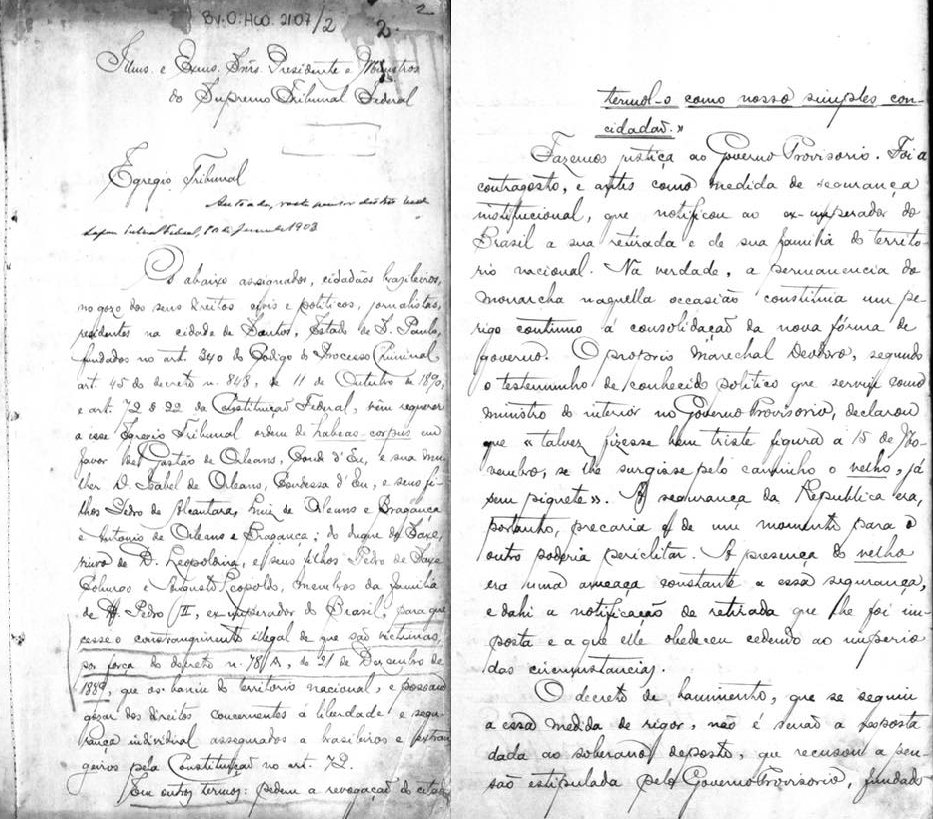 By.O.HCO. 2107/2
2
2.
Illmos. e Exmos. Snrs. Presidente e Ministros
do Supremo Tribunal Federal
Egregio Tribunal
1903
Os abaixo assignados, cidadãos brasileiros,
no gozo dos seus direitos civis e politicos, jornalistas,
residentes na cidade de Santos, Estado de S. Paulo,
fundados no art. 340 do Codigo do Processo Criminal
art. 45 do decreto n. 848, de 11 de Outubro de 1890,
e art. 72 § 22 da Constituição Federal, vêm requerer
a esse Egregio Tribunal ordem de habeas-corpus em
favor de Gastão de Orleans, Conde d'Eu, e sua mu-
lher D. Isabel de Orleans, Condessa d'Eu, e seus fi-
lhos Pedro de Alcantara, Luiz de Orleans e Bragança
e Antonio de Orleans e Bragança; do duque de Saxe,
viuvo de D. Leopoldina, e seus filhos Pedro de Saxe
Coburgo e Augusto Leopoldo, membros da familia
de D. Pedro II, ex-imperador do Brasil, para que
cesse o constrangimento illegal de que são victimas,
por força do decreto n. 78 A, de 21 de Dezembro de
1889, que os baniu do territorio nacional, e possam
gozar dos direitos concernentes á liberdade e segu-
rança individual assegurados a brasileiros e extran-
geiros pela Constituição no art. 72.
Em outros termos: pedem a revogação do citado
termol-o como nosso simples con-
cidadão.»
Fazemos justiça ao Governo Provisorio. Foi a
contragosto, e antes como medida de segurança
institucional, que notificou ao ex-imperador do
Brasil a sua retirada e de sua familia do territo-
rio nacional. Na verdade, a permanencia do
monarcha naquella occasião constituia um pe-
rigo continuo á consolidação da nova fórma de
governo. O proprio Marechal Deodoro, segundo
o testemunho de conhecido politico que serviu como
ministro do interior no Governo Provisorio, declarou
que «talvez fizesse bem triste figura a 15 de No-
vembro, se lhe surgisse pelo caminho o velho, já
sem piquete». A segurança da Republica era,
portanto, precaria e de um momento para o
outro poderia periclitar. A presença do velho
era uma ameaça constante a essa segurança,
e dahi a notificação de retirada que lhe foi im-
posta e a que elle obedeceu cedendo ao imperio
das circumstancias.
O decreto de banimento, que se seguiu
a essa medida de rigor, não é senão a resposta
dada ao soberano deposto, que recusou a pen-
são estipulada pelo Governo Provisorio, fundado